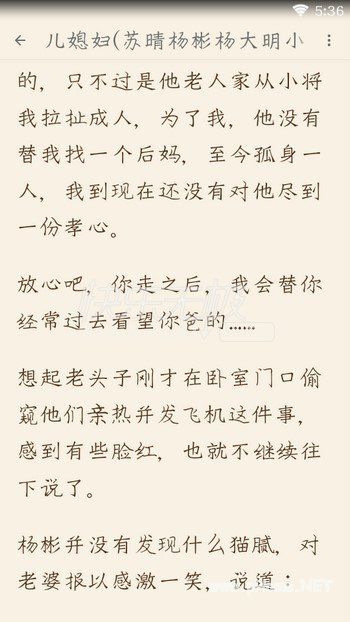 5:36
儿媳妇(苏晴杨彬杨大明小
的，只不过是他老人家从小将
我拉扯成人，为了我，他没有
替我找一个后妈，至今孤身一
人，我到现在还没有对他尽到
一份孝心。
放心吧，你走之后，我会替你
经常过去看望你爸的……
想起老头子刚才在卧室门口偷
窥他们亲热并发飞机这件事，
感到有些脸红，也就不继续往
下说了。
杨彬并没有发现什么猫腻，对
老婆报以感激一笑，说道：